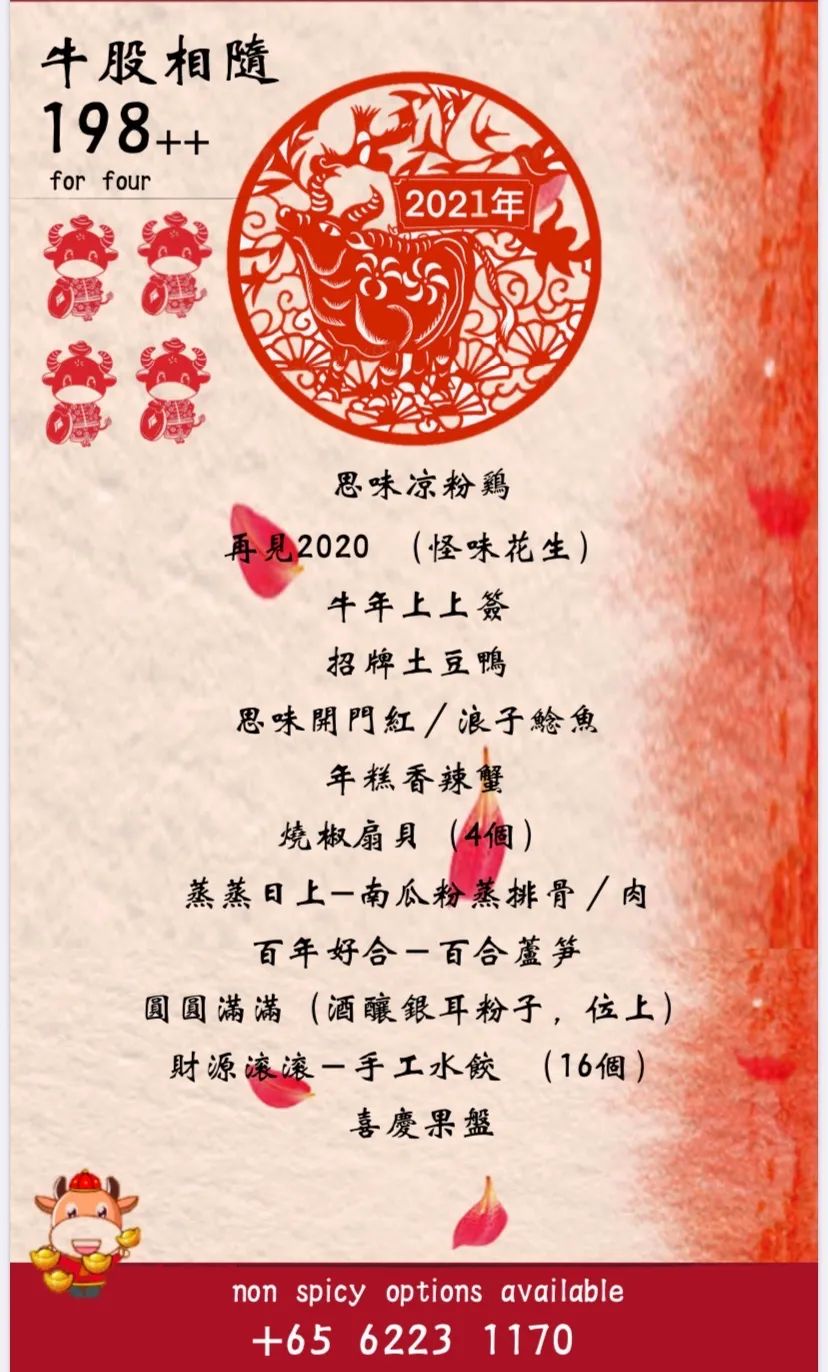 牛股相隨
198++
for four
2021年
思味凉粉鷄
再見2020 （怪味花生）
牛年上上簽
招牌土豆鴨
思味開門紅／浪子鯰魚
年糕香辣蟹
燒椒扇貝（4個）
蒸蒸日上—南瓜粉蒸排骨／肉
百年好合—百合蘆笋
圓圓滿滿（酒釀銀耳粉子，位上）
財源滾滾—手工水餃 （16個）
喜慶果盤
non spicy options available
+65 6223 1170